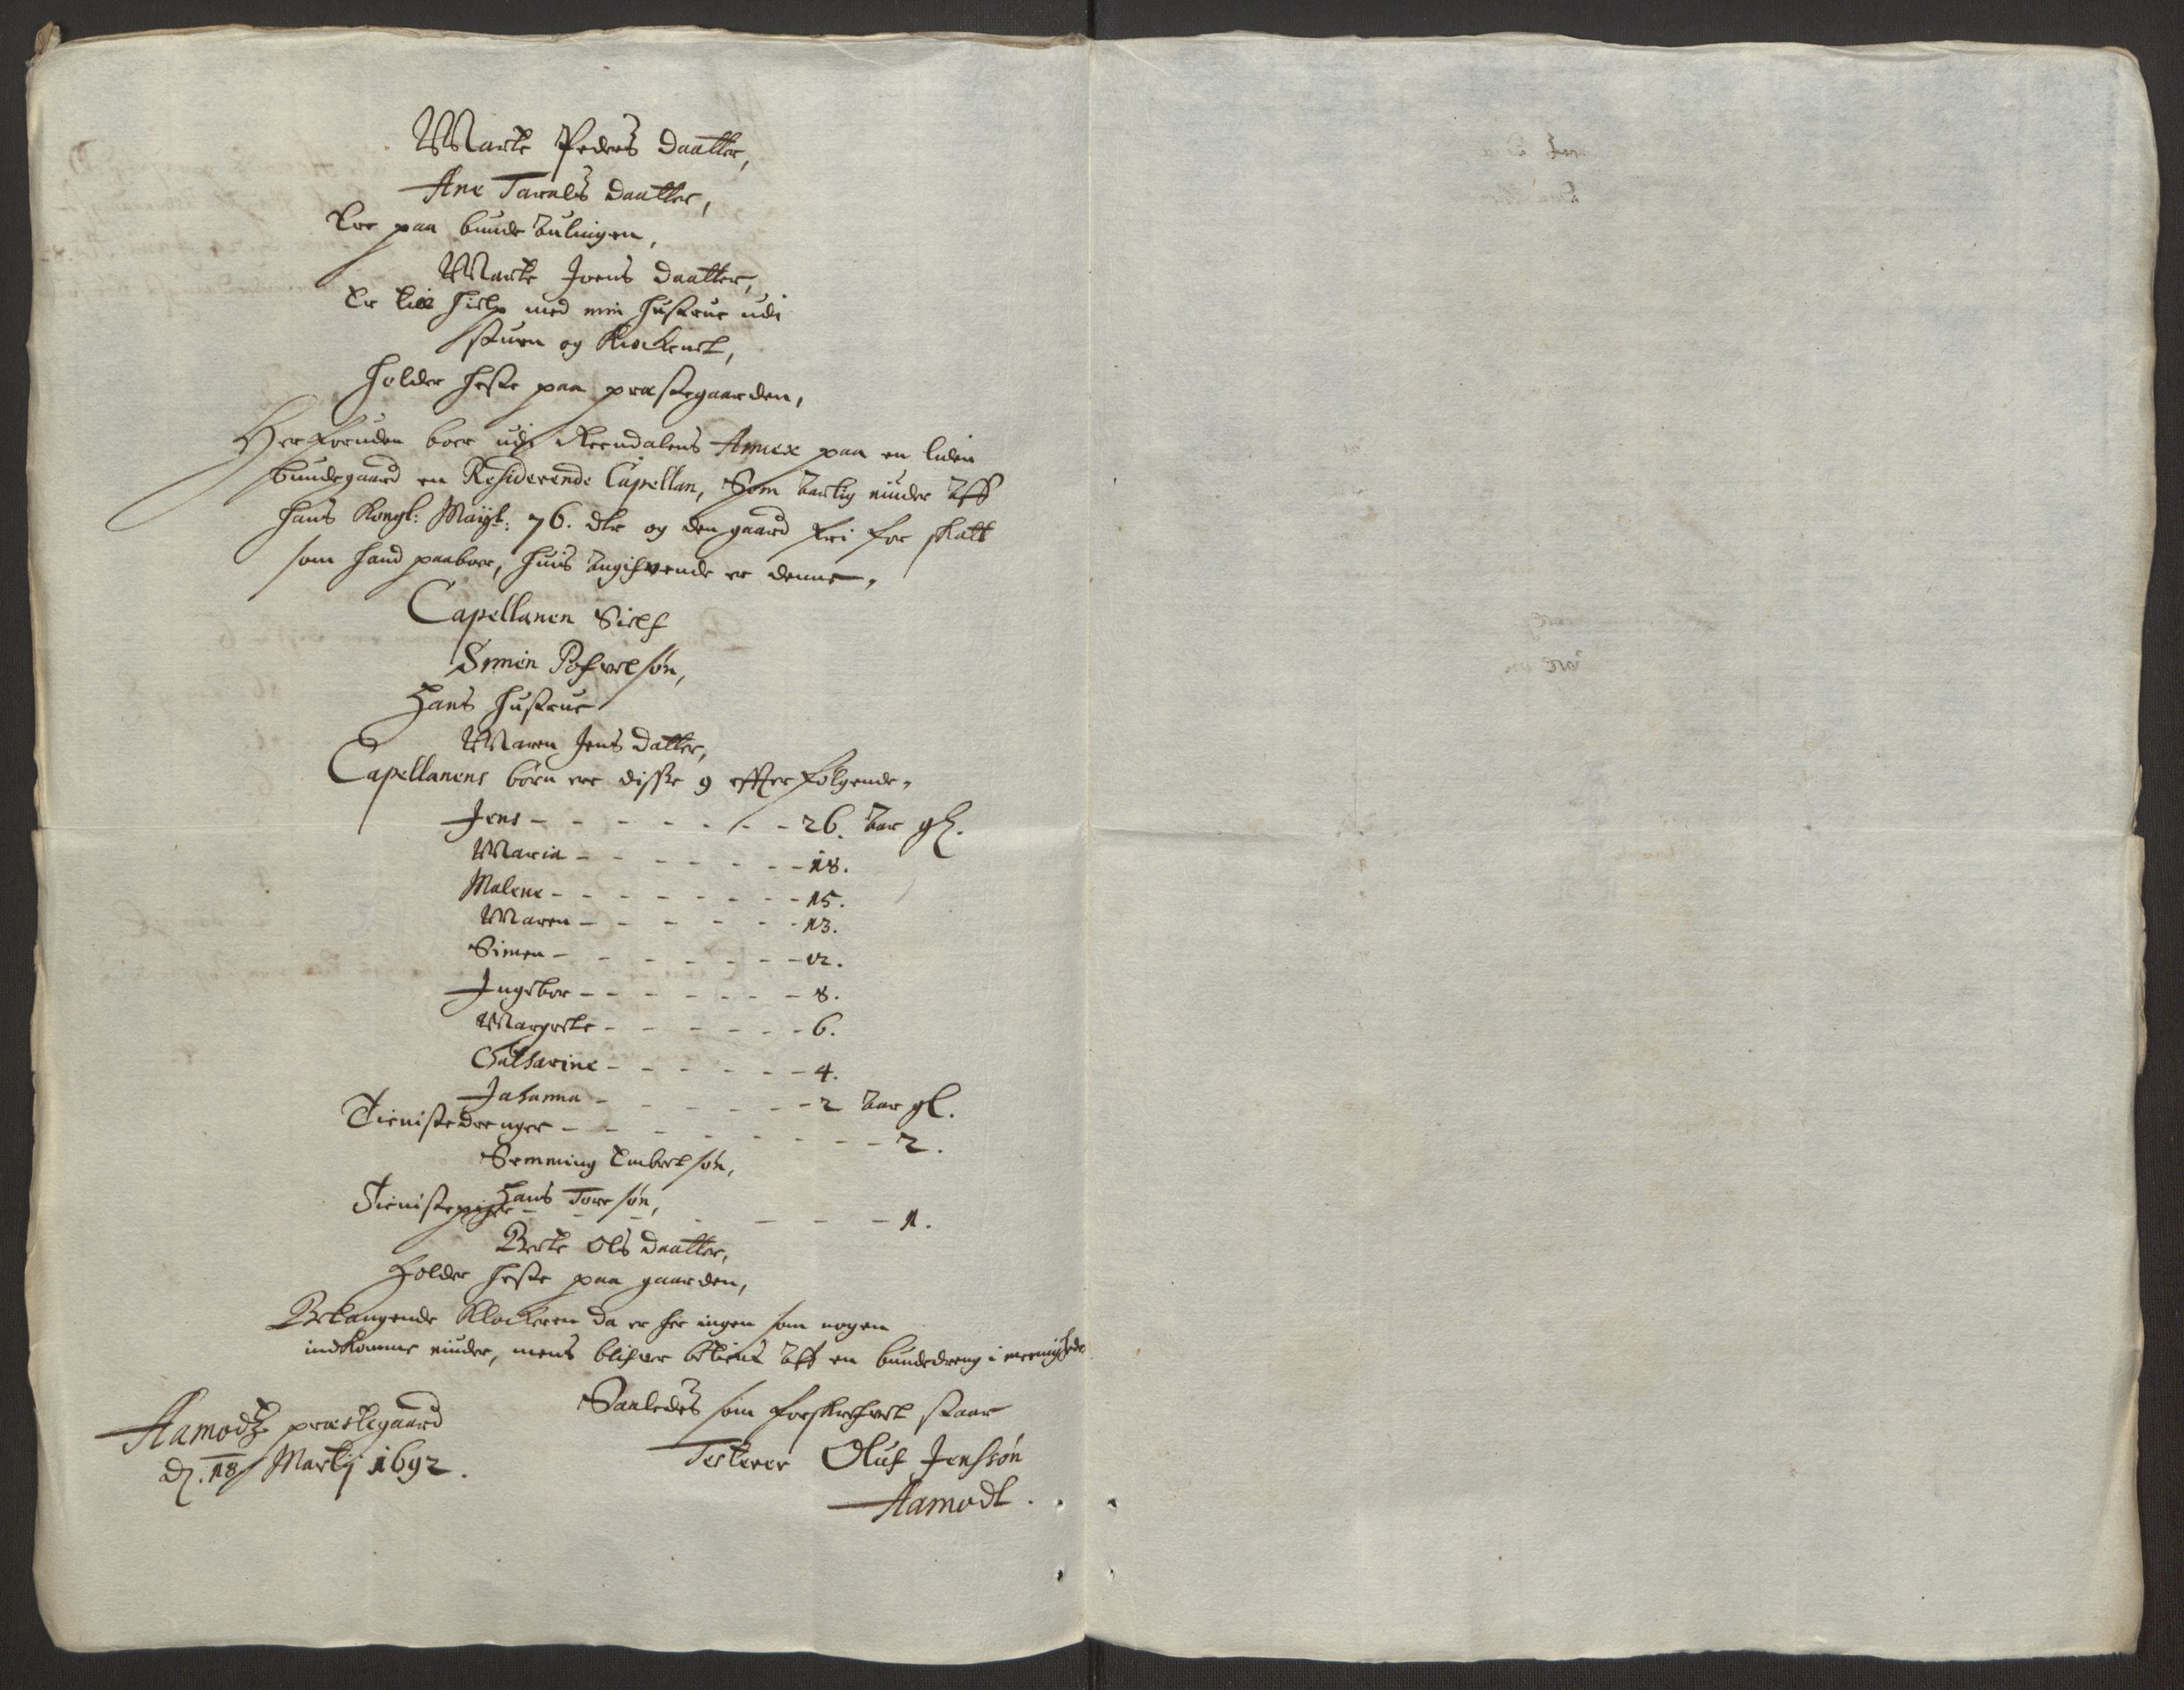 Marte Peders daatter,
Ane Tarals daatter,
Ere paa bunde
Marte Joens daatter,
Er til hielp med min hustrue udi
stuen og Kiøckenet,
Holder heste paa præstegaarden,
Herforuden boer udi Reendalens Annex paa en liden
bundegaard en Residerende Capellan, Som aarlig niuder aff
hans Kongl: Mayt: 76. dlr og den gaard fri for skatt
som hand paaboer, huis angifvende er denne,
Capellanen Sielf
Simen Pofvelsøn,
Hans hustrue
Maren Jens datter,
Capellanens børn ere disse 9 efferfølgende,
Jens - - - - - - - - 26. aar gl.
Maria - - - - - - - 18.
Malene - - - - - - - 15.
Maren - - - - - - 13.
Simen - - - - - - - 12.
Ingebor - - - - - - - 8.
Margrete - - - - - - 6.
Catharine - - - - - - 4.
Johanna - - - - - - 2 aar gl.
Tienistedrenger - - - - - - - - 2.
Semming Embretsøn,
Hans Toresøn,
Tienistepige - - - - - - - 1.
Berte Ols daatter,
Holder heste paa gaarden,
Belangende Klockeren da er her ingen som nogen
indkomme niuder, mens blifver betient aff en bundedreng i meenighede
Saaledes som forskrefvet staar
Aamodtz præstegaard
d. 18 Martij 1692.
Testerer Oluf Jenssøn
Aamodt.